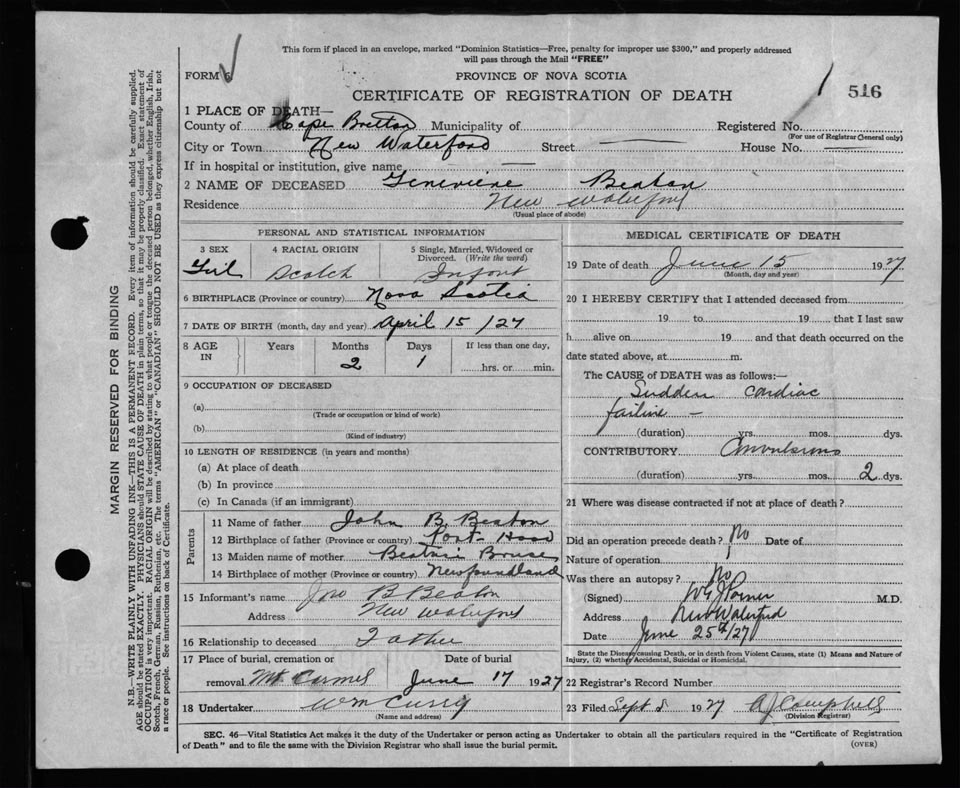 This form if placed in an envelope, marked "Dominion Statistics—Free, penalty for improper use $300," and properly addressed
will pass through the Mail "FREE"
FORM 6
PROVINCE OF NOVA SCOTIA
516
CERTIFICATE OF REGISTRATION OF DEATH
1 PLACE OF DEATH—
County of Cape Breton Municipality of Registered No.
(For use of Registrar General only)
City or Town New Waterford Street House No.
If in hospital or institution, give name
2 NAME OF DECEASED Genevieve Beaton
Residence New Waterford
(Usual place of abode)
PERSONAL AND STATISTICAL INFORMATION
3 SEX 4 RACIAL ORIGIN 5 Single, Married, Widowed or
Divorced. (Write the word)
Girl Scotch Infant
6 BIRTHPLACE (Province or country) Nova Scotia
7 DATE OF BIRTH (month, day and year) April 15 /27
8 AGE IN Years Months Days If less than one day,
2 1 hrs. or min.
9 OCCUPATION OF DECEASED
(a)
(Trade or occupation or kind of work)
(b)
(Kind of industry)
10 LENGTH OF RESIDENCE (in years and months)
(a) At place of death
(b) In province
(c) In Canada (if an immigrant)
Parents
11 Name of father John B. Beaton
12 Birthplace of father (Province or country) Port Hood
13 Maiden name of mother
14 Birthplace of mother (Province or country) Newfoundland
15 Informant's name Jno B Beaton
Address New Waterford
16 Relationship to deceased Father
17 Place of burial, cremation or Date of burial
removal Mt. Carmel June 17 1927
18 Undertaker Wm Curry
(Name and address)
MEDICAL CERTIFICATE OF DEATH
19 Date of death June 15 1927
(Month, day and year)
20 I HEREBY CERTIFY that I attended deceased from
19 to 19 that I last saw
h alive on 19 and that death occurred on the
date stated above, at m.
The CAUSE of DEATH was as follows:—
Sudden cardiac
failure —
(duration) yrs. mos. dys.
CONTRIBUTORY Convulsions
(duration) yrs. mos. 2 dys.
21 Where was disease contracted if not at place of death?
Did an operation precede death? No Date of
Nature of operation
Was there an autopsy? No
(Signed) M.D.
Address New Waterford
Date June 25th/27
State the Disease causing Death, or in death from Violent Causes, state (1) Means and Nature of
Injury, (2) whether Accidental, Suicidal or Homicidal.
22 Registrar's Record Number
23 Filed Sept 8 1927 A J Campbell
(Division Registrar)
SEC. 46—Vital Statistics Act makes it the duty of the Undertaker or person acting as Undertaker to obtain all the particulars required in the "Certificate of Registration
of Death" and to file the same with the Division Registrar who shall issue the burial permit.
(OVER)
MARGIN RESERVED FOR BINDING
N.B.—WRITE PLAINLY WITH UNFADING INK—THIS IS A PERMANENT RECORD. Every item of information should be carefully supplied.
AGE should be stated EXACTLY. PHYSICIANS should STATE CAUSE OF DEATH in plain terms, so that it may be properly classified. Exact statement of
OCCUPATION is very important. RACIAL ORIGIN will be described by stating to what people or tongue the deceased person belonged, whether English, Irish,
Scotch, French, German, Russian, Ruthenian, etc. The terms "AMERICAN" or "CANADIAN" SHOULD NOT BE USED as they express citizenship but not
a race or people. See instructions on back of Certificate.